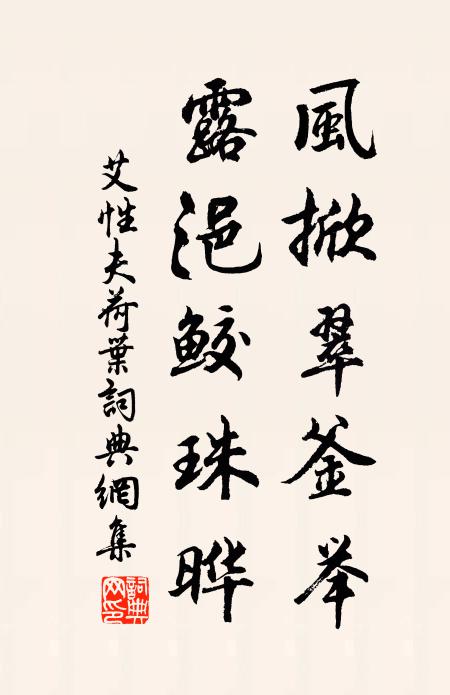 風掀翠釜举
露浥鲛珠晔
艾性夫荷葉詞典網集
詞典網印